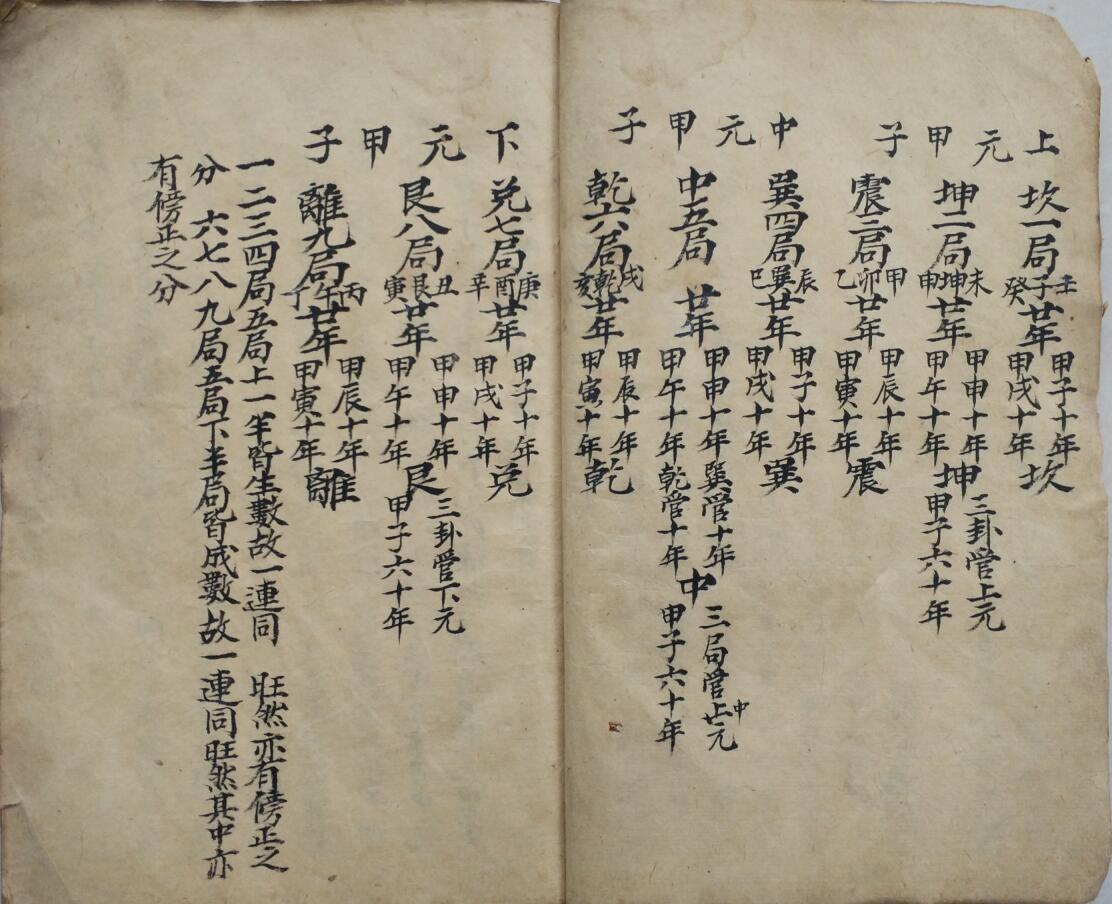 上元甲子
坎一局 壬子癸 廿年 甲子十年 甲戌十年 坎
坤二局 未坤申 廿年 甲申十年 甲午十年 坤 三卦管上元 甲子六十年
震三局 甲卯乙 廿年 甲辰十年 甲寅十年 震
中元甲子
巽四局 辰巽巳 廿年 甲子十年 甲戌十年 巽
中五局 廿年 甲申十年 巽管十年 甲午十年 乾管十年 中 三局管中元 甲子六十年
乾六局 戌乾亥 廿年 甲辰十年 甲寅十年 乾
下元甲子
兑七局 庚酉辛 廿年 甲子十年 甲戌十年 兑
艮八局 丑艮寅 廿年 甲申十年 甲午十年 艮 三卦管下元 甲子六十年
離九局 丙午丁 廿年 甲辰十年 甲寅十年 離
一二三四局五局上一半皆生數故一連同 旺然亦有傍正之
分 六七八九局五局下半局皆成數故一連同旺然其中亦
有傍正之分